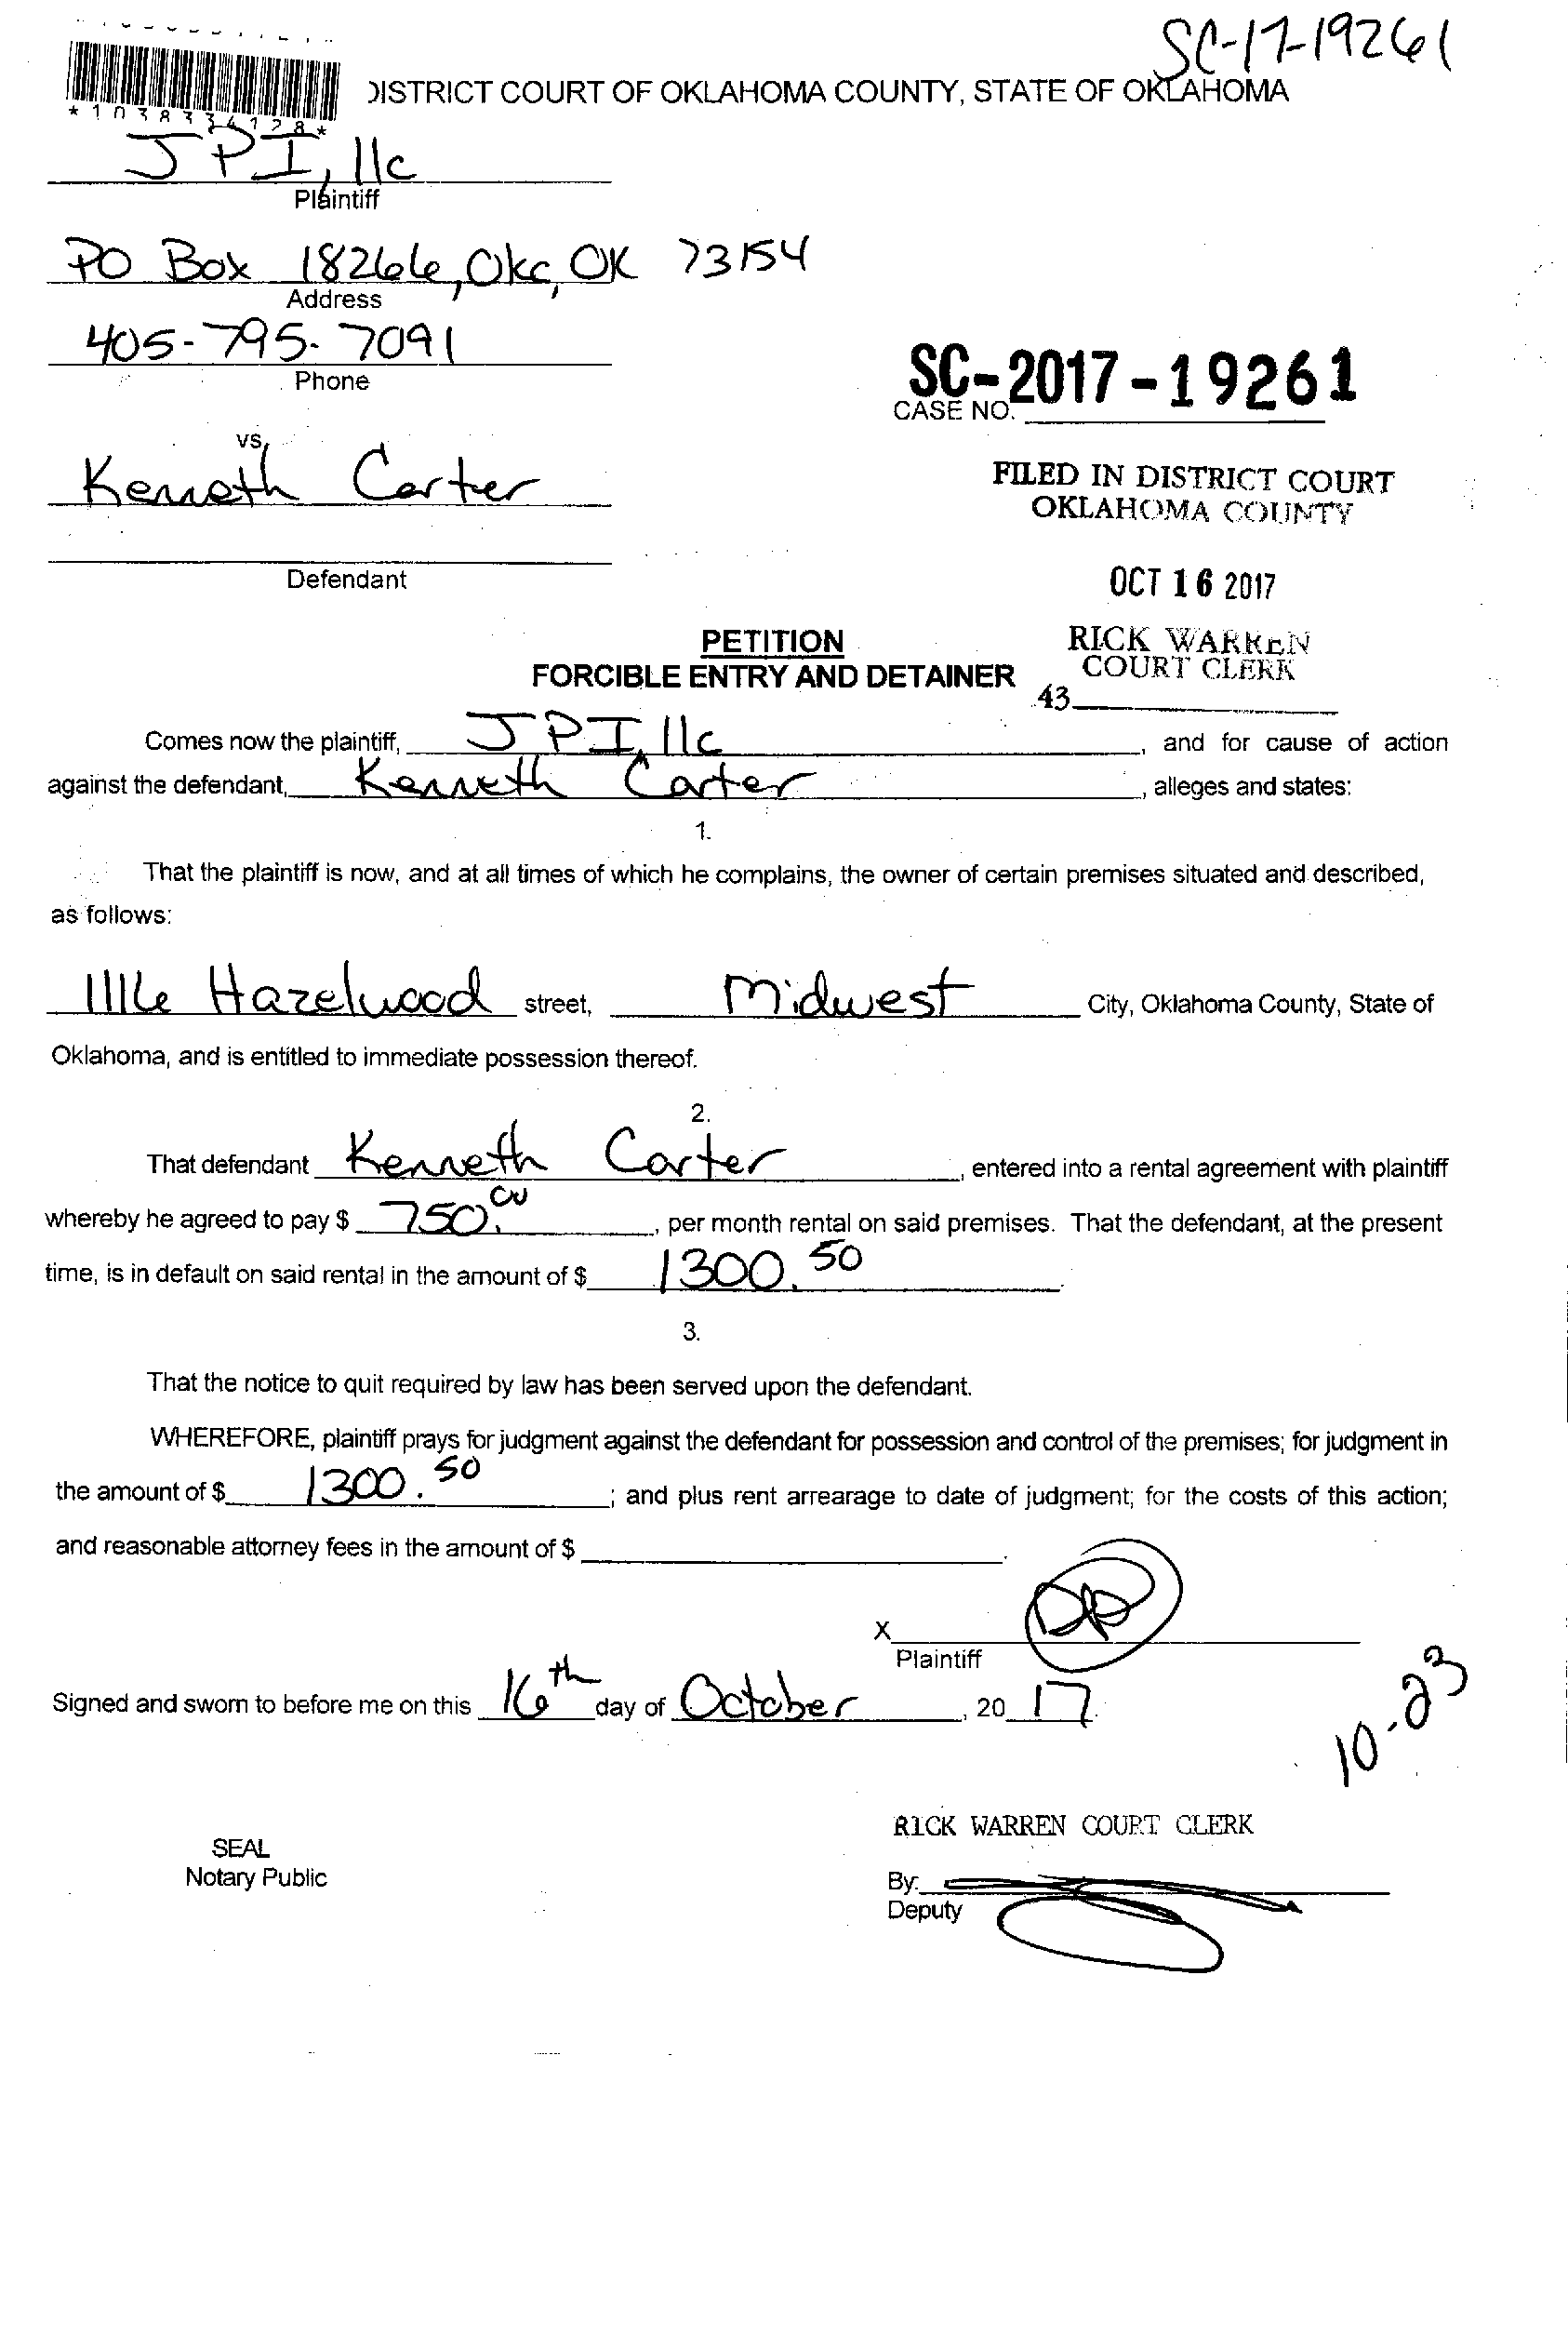 SC-17-19261
DISTRICT COURT OF OKLAHOMA COUNTY, STATE OF OKLAHOMA
*1038334128*
JPI, llc
Plaintiff
PO Box 18266, Okc, OK 73154
Address
405-795-7091
Phone
SC-2017-19261
CASE NO.
vs.
Kenneth Carter
FILED IN DISTRICT COURT
OKLAHOMA COUNTY
Defendant
OCT 16 2017
PETITION
RICK WARREN
FORCIBLE ENTRY AND DETAINER
COURT CLERK
43
Comes now the plaintiff, JPI, llc, and for cause of action
against the defendant, Kenneth Carter, alleges and states:
1.
That the plaintiff is now, and at all times of which he complains, the owner of certain premises situated and described,
as follows:
1116 Hazelwood street, Midwest City, Oklahoma County, State of
Oklahoma, and is entitled to immediate possession thereof.
2.
That defendant Kenneth Carter, entered into a rental agreement with plaintiff
whereby he agreed to pay $ 750.00, per month rental on said premises. That the defendant, at the present
time, is in default on said rental in the amount of $ 1300.50.
3.
That the notice to quit required by law has been served upon the defendant.
WHEREFORE, plaintiff prays for judgment against the defendant for possession and control of the premises; for judgment in
the amount of $ 1300.50; and plus rent arrearage to date of judgment; for the costs of this action;
and reasonable attorney fees in the amount of $ .
X
Plaintiff
Signed and sworn to before me on this 16th day of October, 20 17.
10-23
RICK WARREN COURT CLERK
SEAL
Notary Public
By:
Deputy